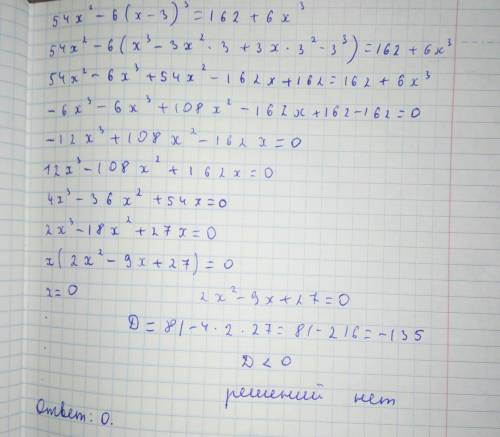 54x² - 6(x-3)³ = 162 + 6x³
54x² - 6(x³ - 3x² · 3 + 3x · 3² - 3³) = 162 + 6x³
54x² - 6x³ + 54x² - 162x + 162 = 162 + 6x³
-6x³ - 6x³ + 108x² - 162x + 162 - 162 = 0
-12x³ + 108x² - 162x = 0
12x³ - 108x² + 162x = 0
4x³ - 36x² + 54x = 0
2x³ - 18x² + 27x = 0
x(2x² - 9x + 27) = 0
x = 0 2x² - 9x + 27 = 0
D = 81 - 4 · 2 · 27 = 81 - 216 = -135
D < 0
решений нет
Ответ: 0.